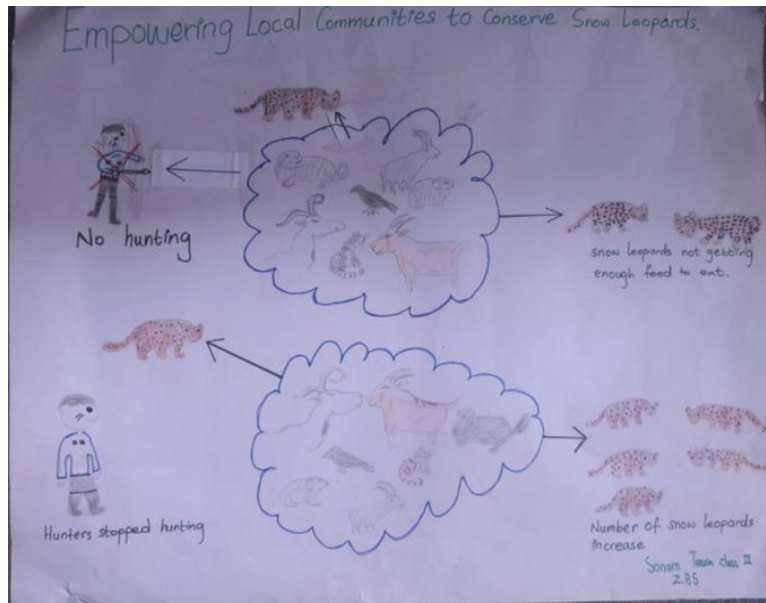 Empowering Local Communities to Conserve Snow Leopards.
No hunting
snow leopards not getting
enough food to eat.
Hunters stopped hunting
Number of snow leopards
increase
Sonam
class III
Z.P.S